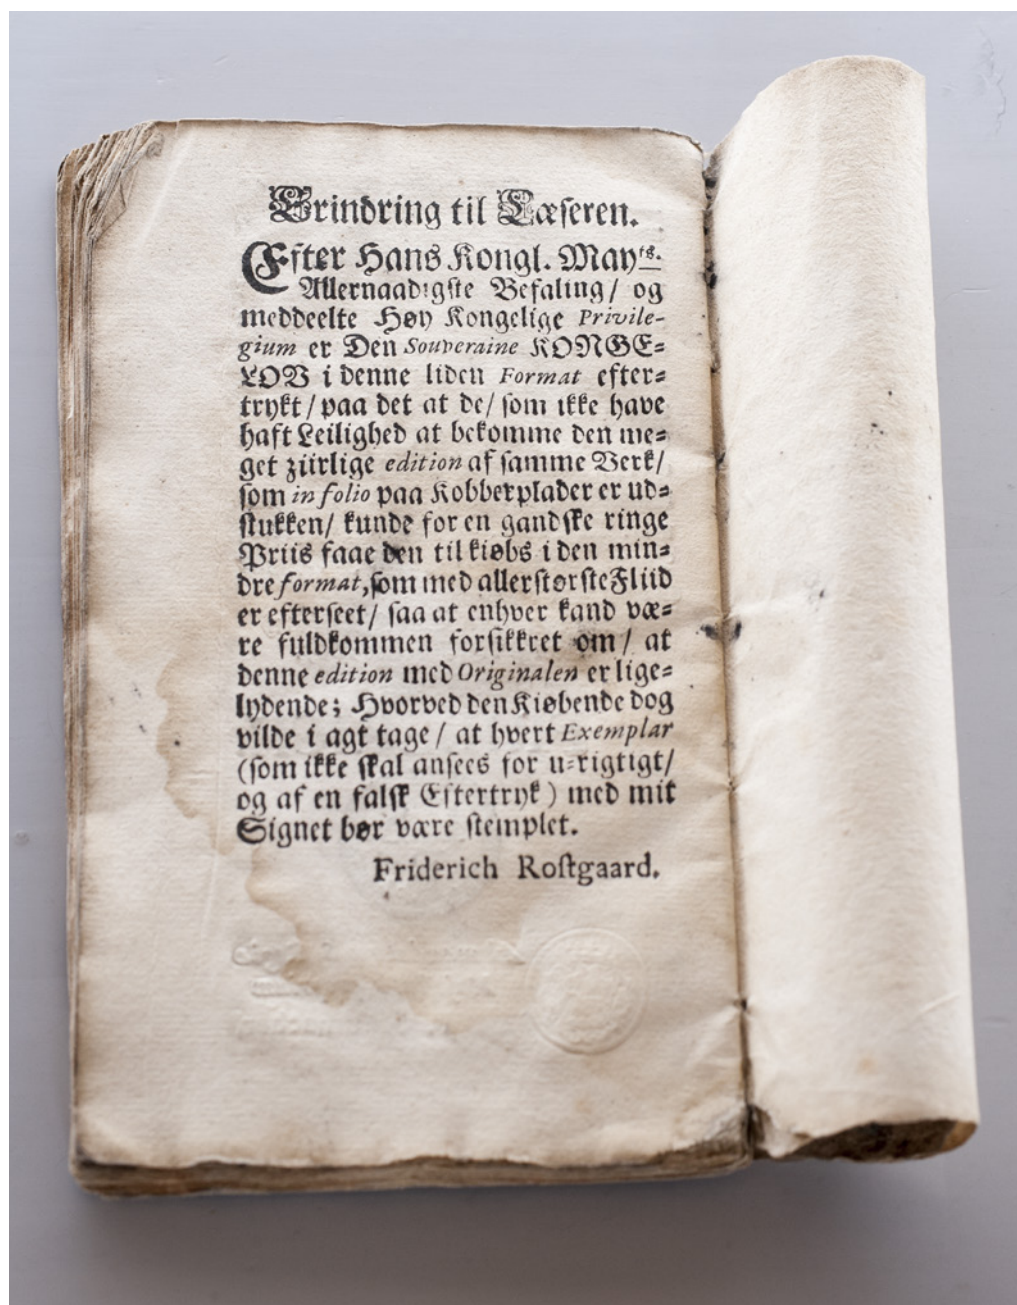 Erindring til Læseren.
Efter Hans Kongl. Mayᵗˢ.
Allernaadigste Befaling/ og
meddeelte Høy Kongelige Privile-
gium er Den Souveraine KONGE-
LOV i denne liden Format efter-
trykt/ paa det at de/ som ikke have
haft Leilighed at bekomme den me-
get ziirlige edition af samme Verk/
som in folio paa Kobberplader er ud-
stukken/ kunde for en gandske ringe
Priis faae den til kiøbs i den min-
dre format, som med allerstørste Fliid
er efterseet/ saa at enhver kand væ-
re fuldkommen forsikkret om/ at
denne edition med Originalen er lige-
lydende; Hvorved den Kiøbende dog
vilde i agt tage/ at hvert Exemplar
(som ikke skal ansees for u-rigtigt/
og af en falsk Eftertryk) med mit
Signet bør være stemplet.
Friderich Rostgaard.